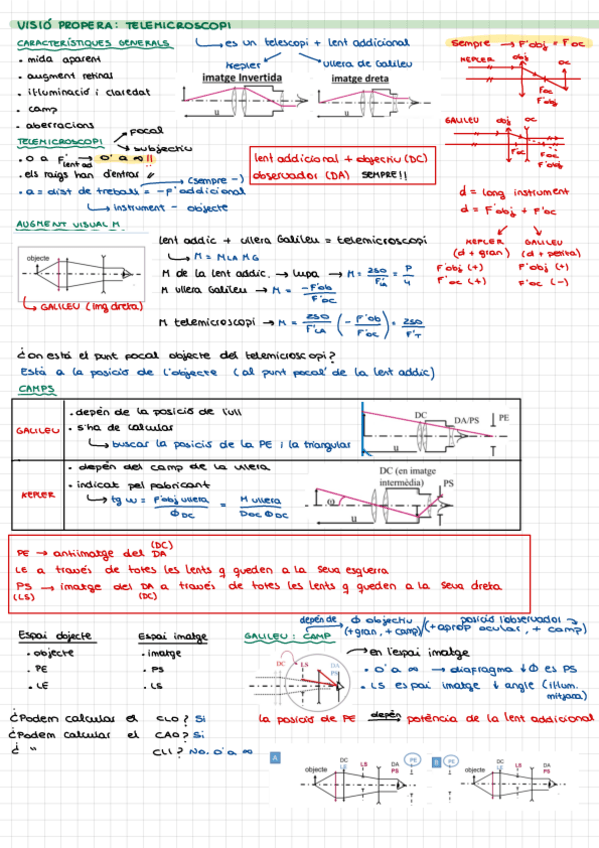 VISIÓ PROPERA: TELEMICROSCOPI
CARACTERÍSTIQUES GENERALS
. mida aparent
. augment retinal
. il·luminació i claredat
. camp
. aberracions
es un telescopi + lent addicional
Kepler
ullera de Galileu
imatge Invertida
imatge dreta
u
u
sempre → F'obj = Foc
KEPLER
obj
oc
Foc
F'obj
GALILEU
obj
oc
Foc
F'obj
TELEMICROSCOPI
Focal
subjectiu
. O a F lent ad → O' a ∞ !!
. els raigs han d'entrar //
. a = dist de treball = -F'addicional
(sempre -)
instrument - objecte
lent addicional + objectiu (DC)
observador (DA) SEMPRE!!
d = long instrument
d = F'obj + F'oc
KEPLER
(d + gran)
F'obj (+)
F'oc (+)
GALILEU
(d + petita)
F'obj (+)
F'oc (-)
AUGMENT VISUAL M
objecte
GALILEU (img dreta)
lent addic + ullera Galileu = telemicroscopi
M = MLA MG
M de la lent addic. → lupa → M = 250/F'LA = P/4
M ullera Galileu → M = -F'ob/F'oc
M telemicroscopi → M = 250/F'LA (-F'ob/F'oc) = 250/F'T
¿on està el punt focal objecte del telemicroscopi?
Està a la posició de l'objecte (al punt focal de la lent addic)
CAMPS
GALILEU
. depèn de la posició de l'ull
. s'ha de calcular
buscar la posició de la PE i la triangular
DC
DA/PS
PE
u
KEPLER
. depèn del camp de la ullera
. indicat pel fabricant
tg ω = F'obj ullera/ΦDC = M ullera/DOC ΦDC
DC (en imatge
intermèdia)
PS
ω
u
PE → antiimatge del DA
(DC)
LE a través de totes les lents q queden a la seva esquerra
PS → imatge del DA a través de totes les lents q queden a la seva dreta
(LS)
(DC)
Espai objecte
. objecte
. PE
. LE
Espai imatge
. imatge
. PS
. LS
GALILEU: CAMP
depèn de Φ objectiu / posició l'observador
(+gran, + camp) (+aprop ocular, + camp)
en l'espai imatge
. O' a ∞ → diafragma ↓ Φ es PS
. LS espai imatge ↓ angle (il·lum.
mitjana)
DC
LS
DA
PS
¿Podem calcular el CLO? Sí
¿Podem calcular el CAO? Sí
¿ " CLI? No. O' a ∞
la posició de PE depèn potència de la lent addicional
A
objecte
DC
LE
LS
DA
PS
PE
B
PE
objecte
DC
LE
LS
DA
PS